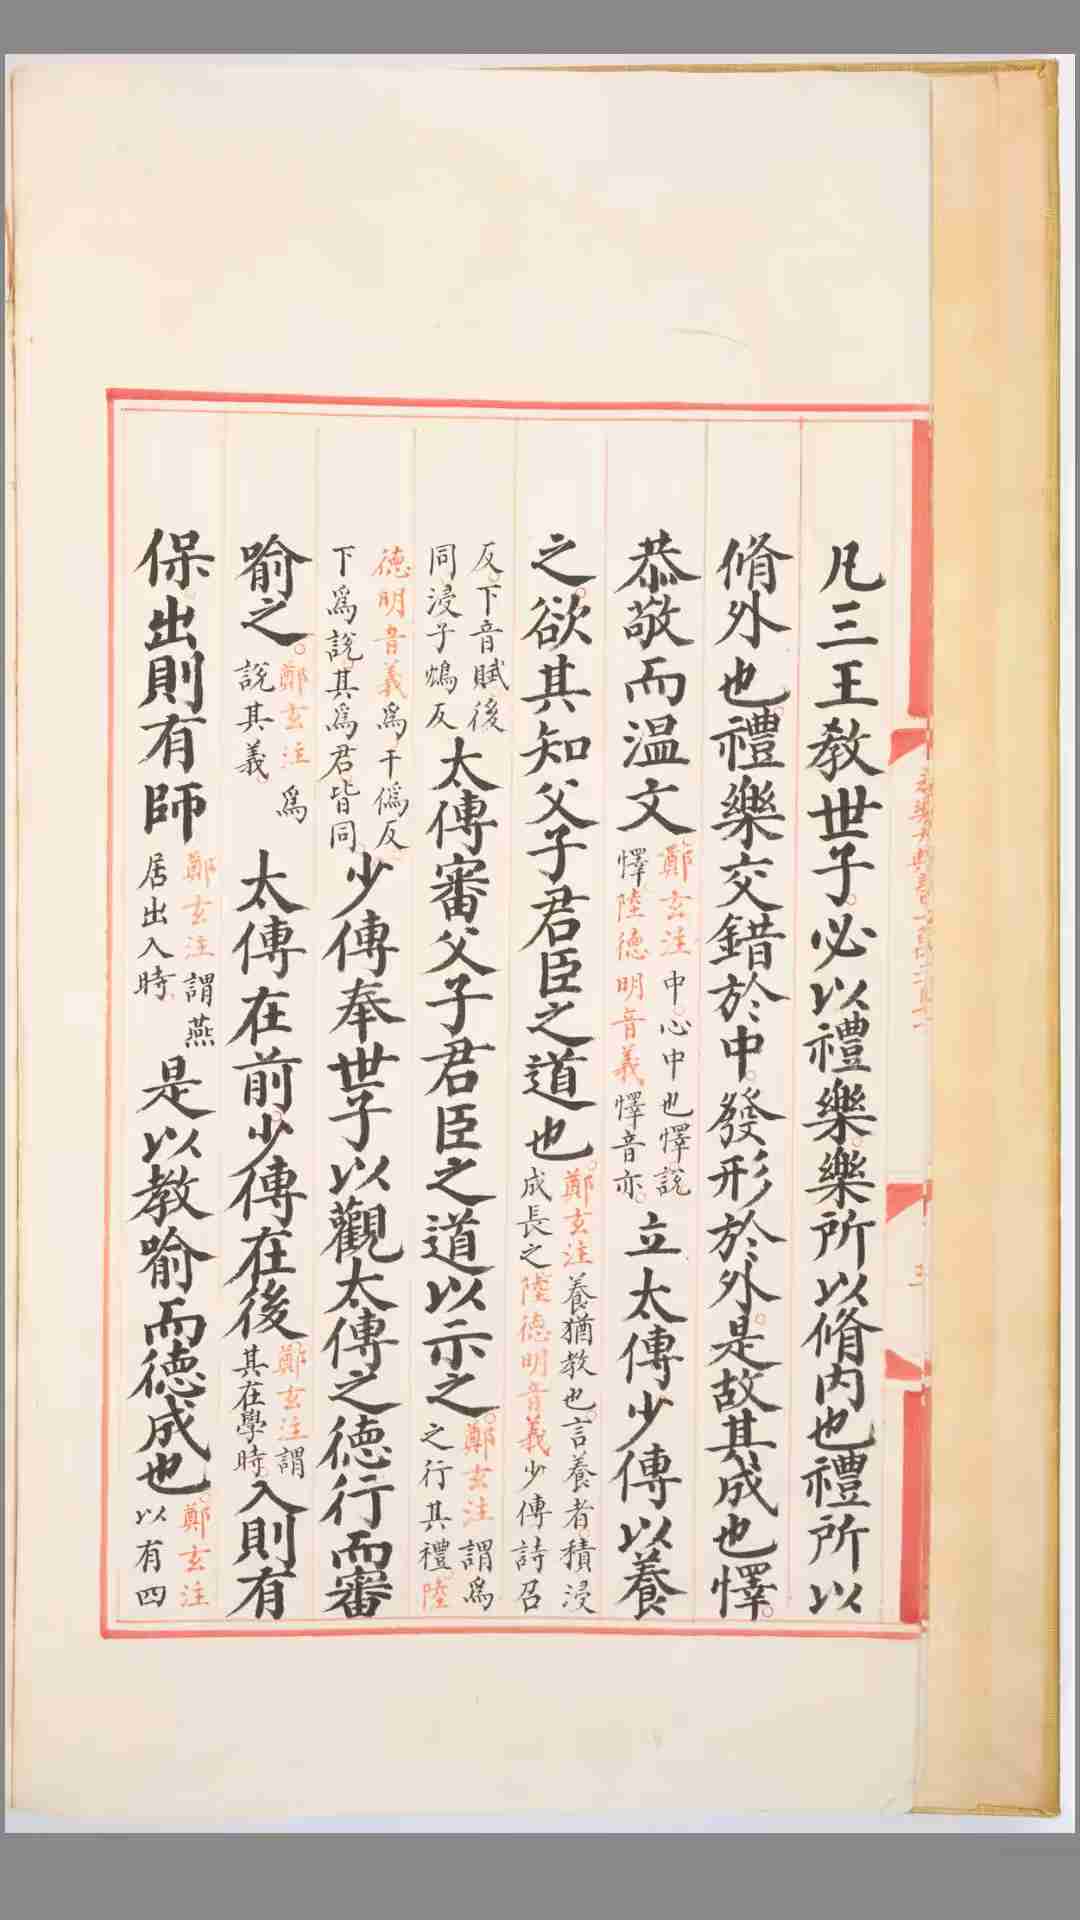 凡三王教世子。必以禮樂。樂所以脩内也禮所以
脩外也。禮樂交錯於中。發形於外。是故其成也懌。
恭敬而温文
鄭玄注中。心中也懌說
懌。陸德明音義懌音亦。
立太傅少傅以養
之。欲其知父子君臣之道也。
鄭玄注養猶教也。言養者。積浸
成長之陸德明音義少傅詩召
反。下音賦後
同浸子鴆反
太傅審父子君臣之道以示之。
鄭玄注謂爲
之行其禮。陸
德明音義爲于僞反
下爲說。其爲君皆同
少傅奉世子以觀太傅之德行而審
喻之。
鄭玄注爲
說其義。
太傅在前。少傅在後
鄭玄注謂
其在學時。
入則有
保。出則有師
鄭玄注謂燕
居出入時。
是以教喻而德成也。
鄭玄注
以有四